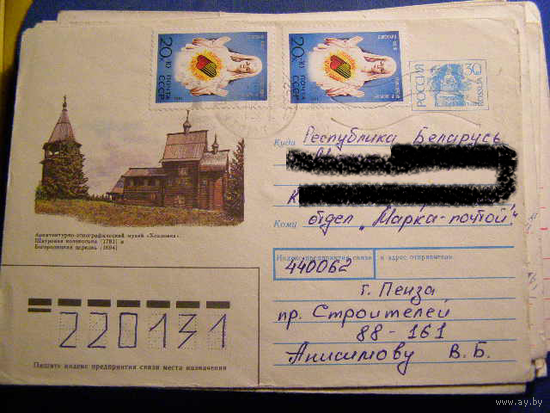 20 К
ПОЧТА
СССР
20 К
ПОЧТА
СССР
РОССИЯ
30
Куда Республика Беларусь
Кому отдел „Марка-почтой"
Архитектурно-этнографический музей «Хохловка».
Шатровая колокольня (1781) и
Богородицкая церковь (1694)
Индекс предприятия связи и адрес отправителя
440062
г. Пенза
пр. Строителей
88-161
Анисимову В. Б.
220131
Пишите индекс предприятия связи места назначения
www.ay.by